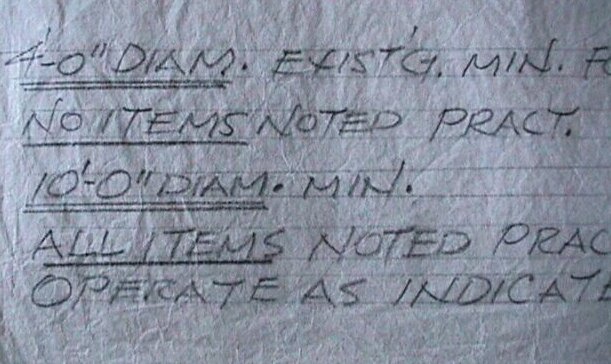 4'-0" DIAM. EXIST'G. MIN.
NO ITEMS NOTED PRACT.
10'-0" DIAM. MIN.
ALL ITEMS NOTED PRAC
OPERATE AS INDICATE